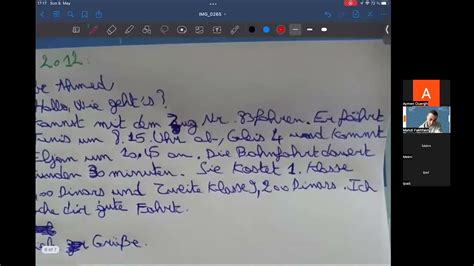 17:17 Sun 8. May
IMG_0265
72 %
2012
Ahmed,
Hallo, Wie geht's?
kannst mit dem Zug Nr. 83 fahren. Er fährt
Tunis um 7.15 Uhr ab, Gleis 4 und kommt
um 10,45 an. Die Bahnfahrt dauert
30 minuten. Sie Kostet 1. Klasse
Dinars und Zweite Klasse 9,200 Dinars. Ich
dir gute Fahrt.
Grüße.
6 of 7
A
Aymen Ouerghi
Mehdi Fakhfakh
Malim
Malim